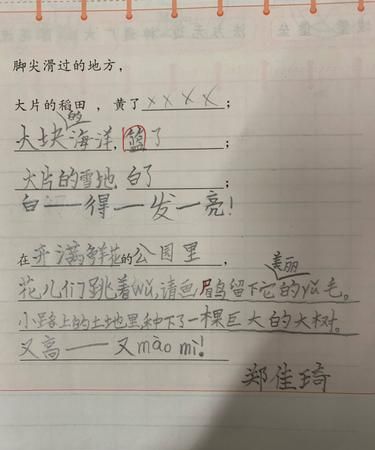 脚尖滑过的地方，
大片的稻田，黄了××××；
大块的海洋，蓝了；
大片的雪地，白了；
白——得—发—亮！
在开满鲜花的公园里，
花儿们跳着wǔ，请画眉鸟留下它美丽的yǔ毛。
小路上的土地里种下了一棵巨大的大树。
又高——又mào mì！
郑佳琦